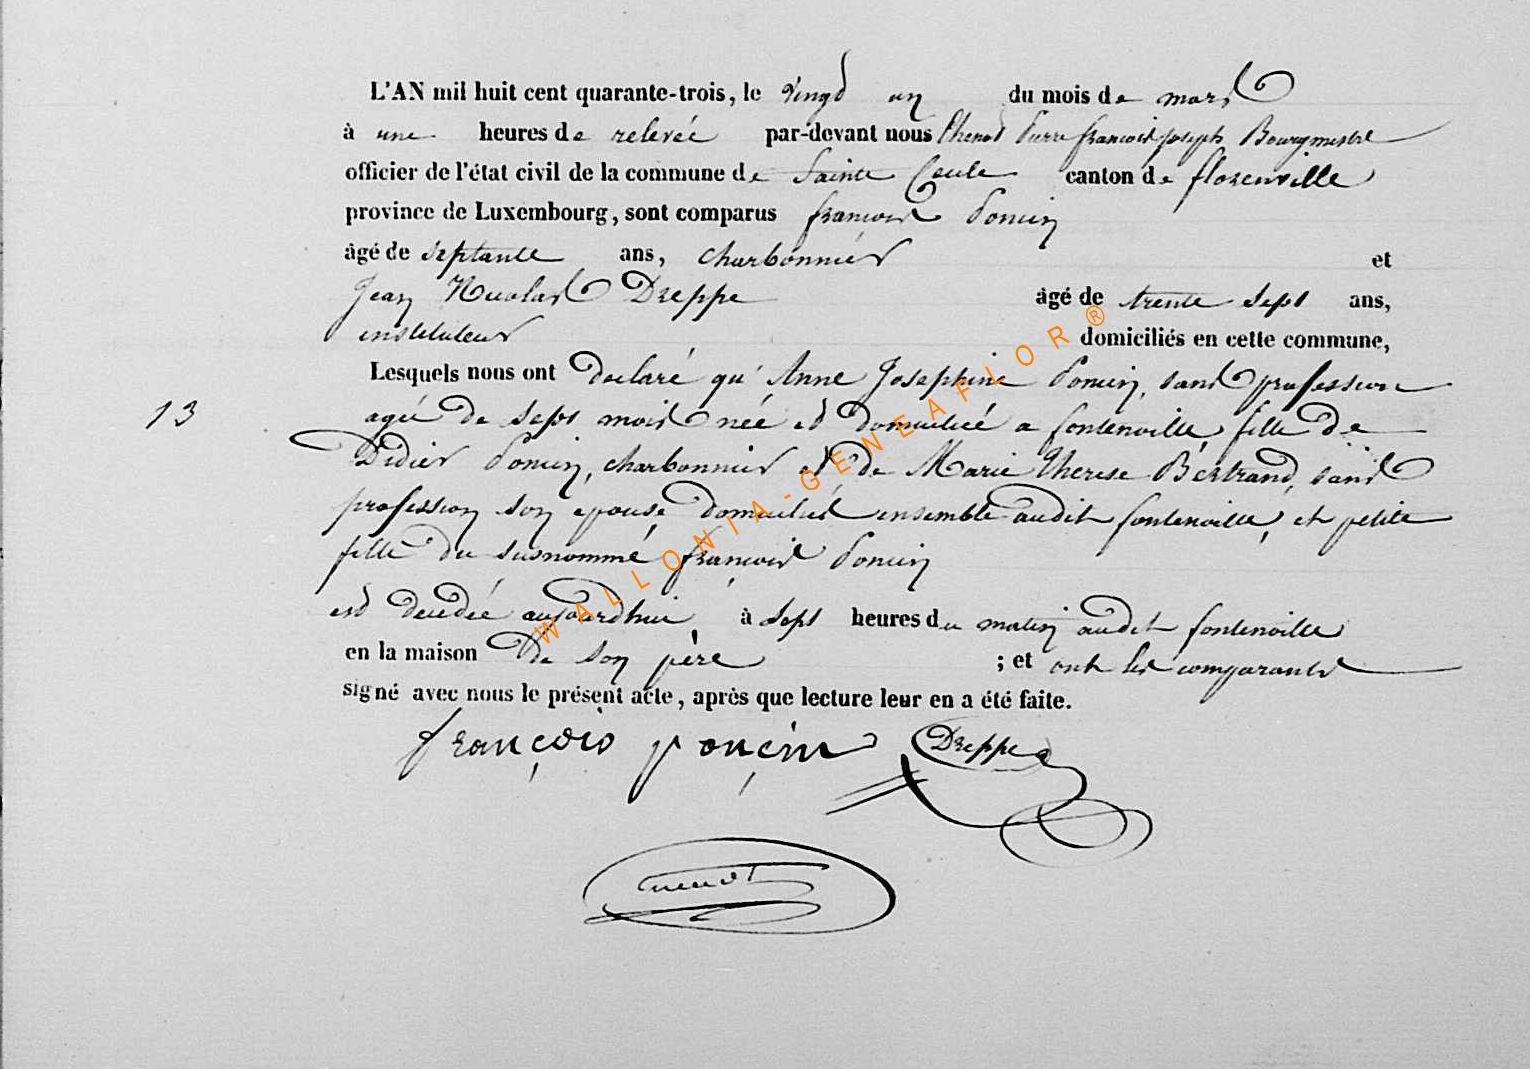 L'AN mil huit cent quarante-trois, le vingt un du mois de mars
à une heures de relevée par-devant nous Thenot Pierre françois joseph Bourgmestre
officier de l'état civil de la commune de Sainte Cecile canton de florenville
province de Luxembourg, sont comparus françois Poncin
âgé de septante ans, charbonnier et
Jean Nicolas Dreppe âgé de trente sept ans,
instituteur domiciliés en cette commune,
Lesquels nous ont déclaré qu'Anne Josephine Poncin, sans profession
13 agée de sept mois née et domiciliée a fontenoille, fille de
Didier Poncin, charbonnier et de Marie Therese Bertrand, sans
profession son epouse domiciliés ensemble audit fontenoille, et petite
fille du susnommé françois Poncin
est decedée aujourdhui à sept heures du matin audit fontenoille
en la maison de son père ; et ont les comparants
signé avec nous le présent acte, après que lecture leur en a été faite.
françois poncin Dreppe
WALLONIA-GENEAFLOR®